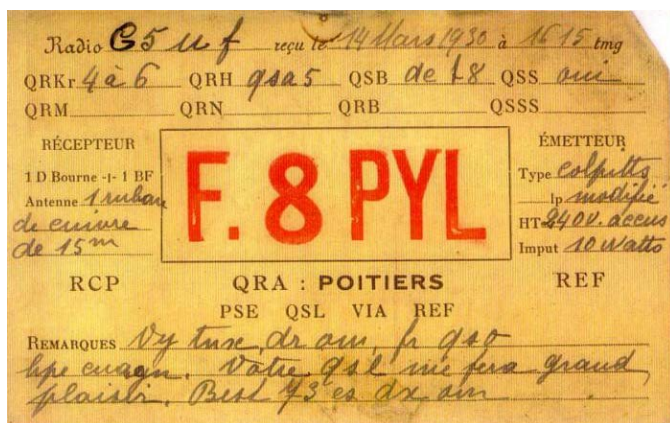 Radio G5uf reçu le 14 Mars 1930 à 1615 tmg
QRKr 4 à 6 QRH qsa5 QSB de t8 QSS oui
QRM QRN QRB QSSS
RÉCEPTEUR
1 D Bourne -1- 1 BF
Antenne 1 ruban
de cuivre
de 15m
F. 8 PYL
ÉMETTEUR
Type colpitts
Ip modifié
HT 240v. accus
Imput 10 Watts
RCP QRA : POITIERS REF
PSE QSL VIA REF
REMARQUES Vy tnx, dr om, fr qso
hpe cuagn. Votre qsl me fera grand
plaisir. Best 73 es dx om